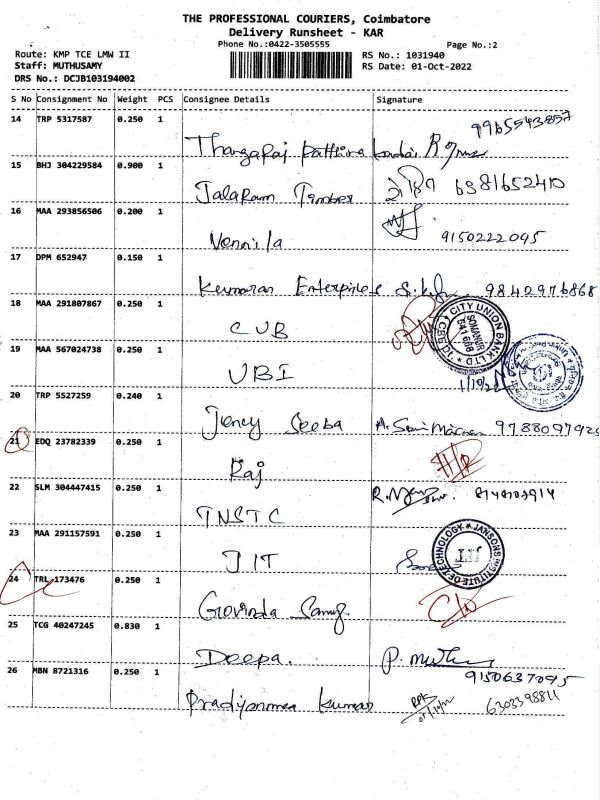 THE PROFESSIONAL COURIERS, Coimbatore
Delivery Runsheet - KAR
Phone No.:0422-3505555 Page No.:2
Route: KMP TCE LMW II RS No.: 1031940
Staff: MUTHUSAMY RS Date: 01-Oct-2022
DRS No.: DCJB103194002
S No Consignment No Weight PCS Consignee Details Signature
14 TRP 5317587 0.250 1
9965543857
Thangaraj
15 BHJ 304229584 0.900 1
Jalaram Timber 6381652410
16 MAA 293856506 0.200 1
Vennila 9150222095
17 DPM 652947 0.150 1
Kumaran Enterprises 9842976868
18 MAA 291807867 0.250 1
CUB
CITY UNION BANK LTD
SOMANUR
641 668
19 MAA 567024738 0.250 1
UBI
20 TRP 5527259 0.240 1
Jency Seeba 9788097925
21 EDQ 23782339 0.250 1
Raj
22 SLM 304447415 0.250 1
TNSTC
23 MAA 291157591 0.250 1
JIT
JANSONS INSTITUTE OF TECHNOLOGY
JIT
24 TRL 173476 0.250 1
Govinda Samy
25 TCG 40247245 0.830 1
Deepa. P. Muthu
9150637095
26 MBN 8721316 0.250 1
Kumar 6303398811